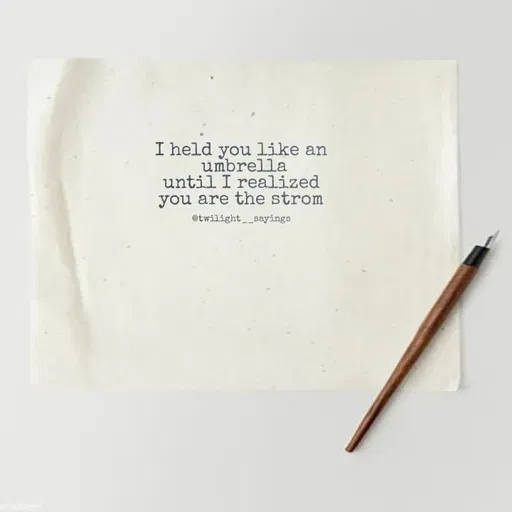 I held you like an
umbrella
until I realized
you are the strom
@twilight__sayings